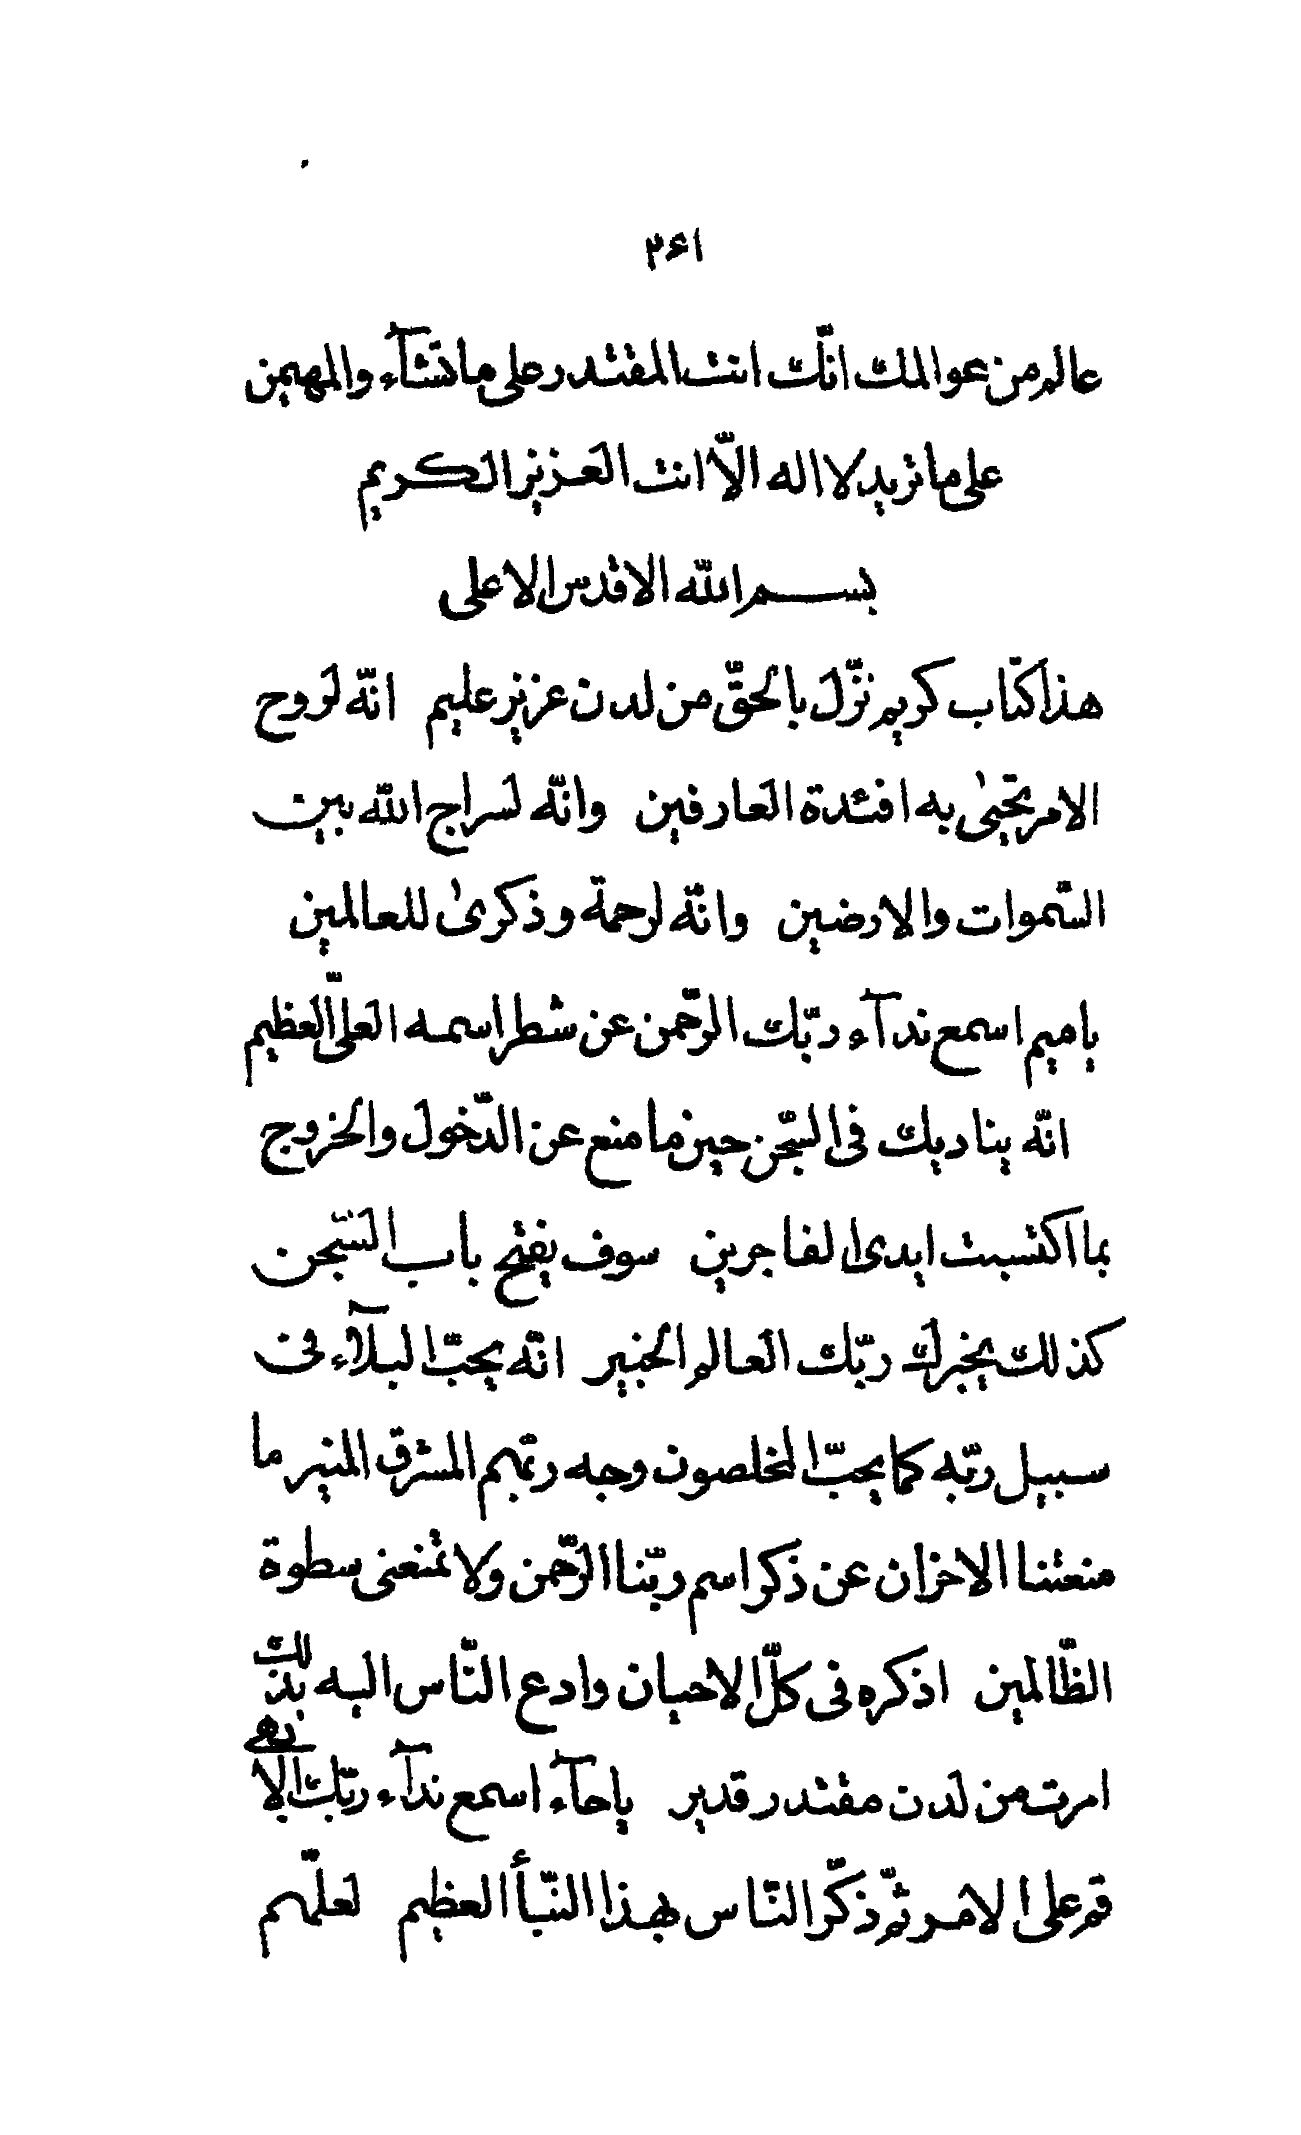 ٢۶١
عالم من عوالمك انّك انت المقتدر على ما تشآء والمهيمن
على ما تريد لا اله الّا انت العزيز الكريم
بسم اللّه الاقدس الاعلى
هذا كتاب كريم نزّل بالحقّ من لدن عزيز عليم انّه لروح
الامر تحيىٰ به افئدة العارفين وانّه لسراج اللّه بين
السّموات والارضين وانّه لرحمة وذكرىٰ للعالمين
يا ميم اسمع ندآء ربّك الرّحمن عن شطر اسمه العلىّ العظيم
انّه يناديك فى السّجن حين ما منع عن الدّخول والخروج
بما اكتسبت ايدى الفاجرين سوف يفتح باب السّجن
كذلك يخبرك ربّك العالم الخبير انّه يحبّ البلآء فى
سبيل ربّه كما يحبّ المخلصون وجه ربّهم المشرق المنير ما
منعتنا الاحزان عن ذكر اسم ربّنا الرّحمن ولا تمنعنى سطوة
الظّالمين اذكره فى كلّ الاحيان وادع النّاس اليه بذلك
امرت من لدن مقتدر قدير يا حآء اسمع ندآء ربّك الابهى
قم على الامر ثمّ ذكّر النّاس بهذا النّبأ العظيم لعلّهم